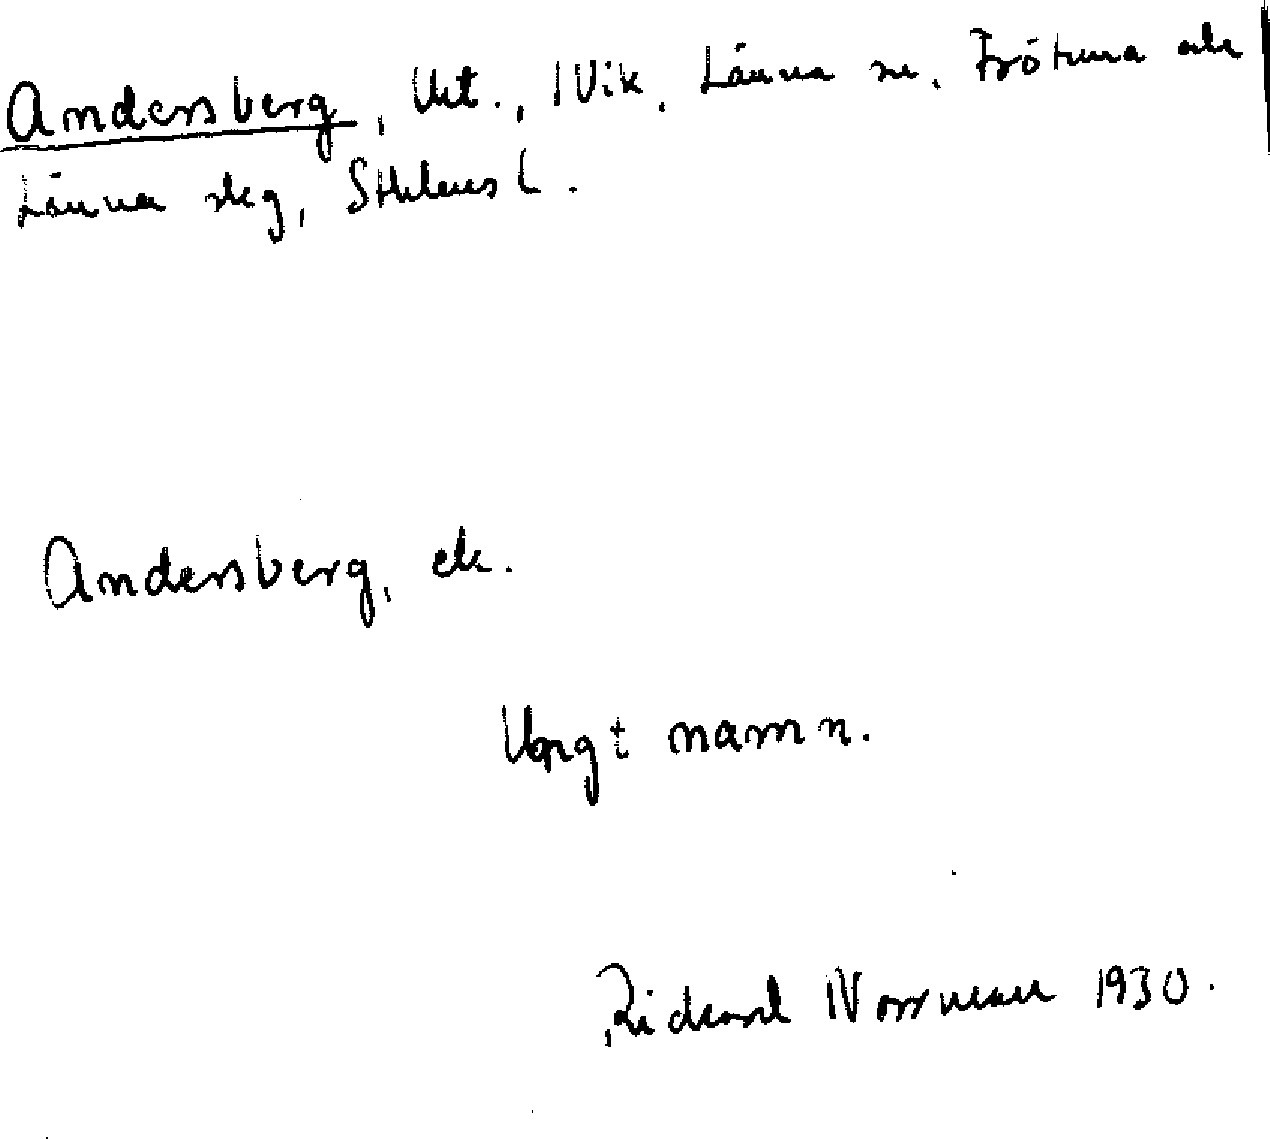 Andersberg, lht., 1 Vik, Länna sn. Frötuna och
Länna skg, Sthlms l.
Andersberg, ek.
Ungt namn.
Rickard Norrman 1930.